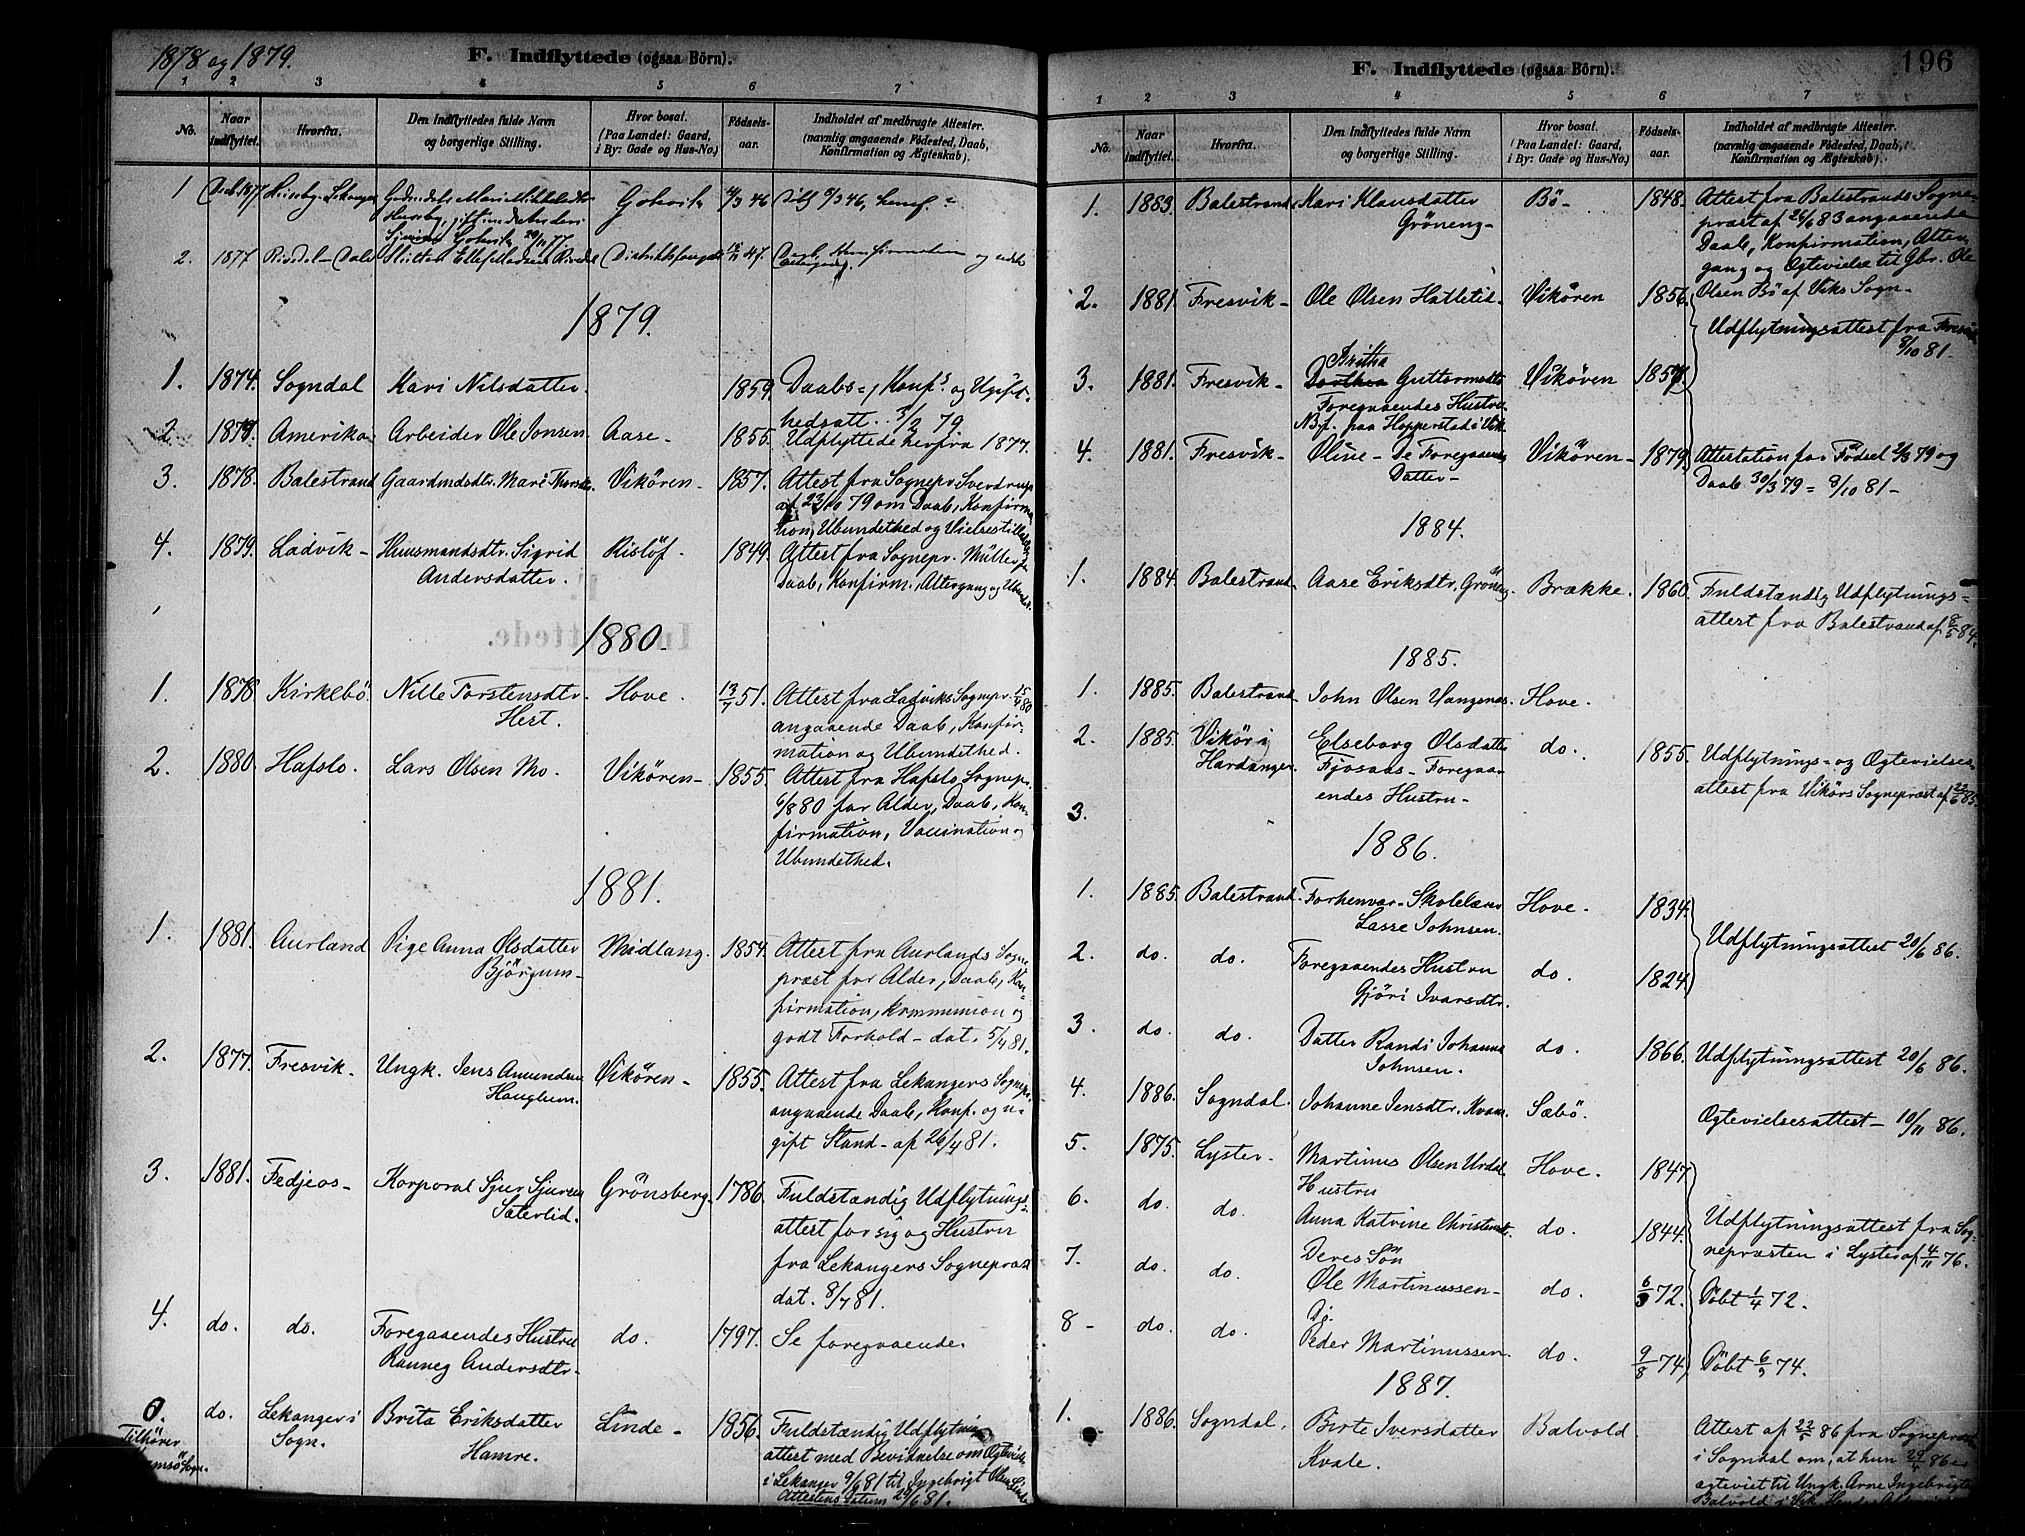 1878 og 1879.
F. Indflyttede (ogsaa Börn).
1 2 3 4 5 6 7
No.
Naar indflyttet.
Hvorfra.
Den Indflyttedes fulde Navn
og borgerlige Stilling.
Hvor bosat.
(Paa Landet: Gaard,
i By: Gade og Hus-No.)
Fødsels-
aar.
Indholdet af medbragte Attester.
(navnlig angaaende Fødested, Daab,
Konfirmation og Ægteskab).
1 1877
2. 1877
1879.
1. 1874. Sogndal Kari Nilsdatter. 1859. Daabs-, Konfs og Ugift-
hedsatt. 5/2 79.
2. Amerika Arbeider Ole Jonsen Aase- 1855. Udflyttede herfra 1877.
3. 1878. Balestrand Gaardmdsdtr. Mari Vikören- 1857. Attest fra Sognepr. Sverdrup
af 23/10 79 om Daab, Konfirma
tion, Ubundethed og
4. 1879. Ladvik- Huusmandsdtr. Sigrid Rislöf. 1849. Attest fra Sognepr. Müller for
Andersdatter. Daab, Konfirm., Altergang og
1880.
1. 1878 Kirkebö. Nille Torstensdtr. Hove. 13/7 51. Attest fra Ladviks Sognepr. 15/4 80
Hest. angaaende Daab, Konfir-
mation og Ubundethed.
2. 1880. Hafslo. Lars Olsen Mo. Vikören- 1855. Attest fra Hafslo Sognepr.
6/8 80 for Alder, Daab, Kon-
firmation, Vaccination og
Ubundethed.
1881.
1. 1881. Aurland Pige Anna Olsdatter Midlang. 1854. Attest fra Aurlands Sogne
Bjørgum- præst for Alder, Daab, Kon-
firmation, kommunion og
godt Forhold- dat. 5/4 81.
2. 1877. Fresvik- Ungk. Jens Amundsen Vikören- 1855. Attest fra Lekangers Sognepr.
Hauglum. angaaende Daab, Konf. og u-
gift Stand- af 26/4 81.
3. 1881. Fedjeos- Korporal Sjur Sjursen Grönsberg. 1786. Fuldstændig Udflytnings-
Sæterlid. attest for sig og Hustru
fra Lekangers Sognepræst
dat. 8/7 81.
4. do. do. Foregaaendes Hustru do. 1797. Se foregaaende.
Ranneg Andersdtr.
do. Lekanger i Brita Eriksdatter Linde- 1856. Fuldstændig Udflytnings
Tilhører Sogn. Hamre. attest med Bevidnelse om Ægtevielse
i Lekanger 9/6 81 til Ingebrigt Olsen Linde
Attestens Datum 29/6 81.
F. Indflyttede (ogsaa Börn).
196
1 2 3 4 5 6 7
No.
Naar indflyttet.
Hvorfra.
Den Indflyttedes fulde Navn
og borgerlige Stilling.
Hvor bosat.
(Paa Landet: Gaard,
i By: Gade og Hus-No.)
Fødsels-
aar.
Indholdet af medbragte Attester.
(navnlig angaaende Fødested, Daab,
Konfirmation og Ægteskab).
1. 1883. Balestrand. Kari Klausdatter Bö- 1848. Attest fra Balestrands Sogne-
Gröneng- præst af 26/6 83 angaaende
Daab, Konfirmation, Alter-
gang og Ægtevielse til Gbr. Ole
Olsen Bö af Viks Sogn-
2. 1881. Fresvik- Ole Olsen Hatletid- Vikören 1856.
Udflytningsattest fra Fresvik
8/10 81.
3. 1881. Fresvik- Britha Guttormsdtr Vikören 1857.
Foregaaendes Hustru
4. 1881. Fresvik- Oline- De Foregaaendes Vikören- 1879. Attestation for Födsel 2/3 79 og
Datter- Daab 30/3 79 = 8/10 81-
1884.
1. 1884. Balestrand. Aase Eriksdtr. Gröneng. Brække. 1860. Fuldstændig Udflytnings-
attest fra Balestrand af 8/5 84.
1885.
1. 1885. Balestrand. John Olsen Vangsnes. Hove.
2. 1885. Vikör i Elseborg Olsdatter do. 1855. Udflytnings- og Ægtevielses-
Hardanger. Fjosaas- Foregaa- attest fra Vikörs Sognepræst af 22/6 85.
endes Hustru-
3.
1886.
1. 1885. Balestrand. Forhenvær. Skolelærer Hove. 1834.
Lasse Johnsen.
Udflytningsattest 20/6 86.
2. do. do. Foregaaendes Hustru do. 1824.
Gjöri Ivarsdtr.
3. do. do. Datter Randi Johanna do. 1866. Udflytningsattest 20/6 86.
Johnsen.
4. 1886. Sogndal. Johanne Jensdtr. Kvam. Sæbö. Ægtevielsesattest- 10/11 86.
5. 1875. Lyster. Martinus Olsen Urdal Hove. 1847.
6. do. do. Hustru
Anna Katrine Christensdtr. do. 1844. Udflytningsattest fra Sog-
nepræsten i Lyster af 4/11 76.
7. do. do. Deres Søn
Ole Martinussen- do. 6/3 72. Döbt 1/4 72.
8- do. do. Do.
Peder Martinussen. do. 9/8 74. Döbt 6/9 74.
1887.
1. 1886. Sogndal. Birte Iversdatter Balvold. Attest af 22/5 86 fra Sognepræst
Kvale. i Sogndal om, at hun 29/4 86 er
ægteviet til Ungk. Arne Ingebrigts